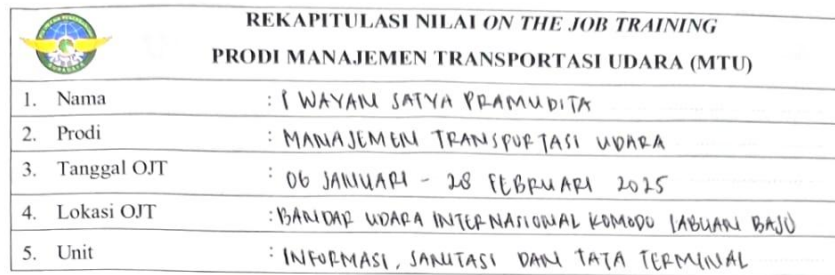 REKAPITULASI NILAI ON THE JOB TRAINING
PRODI MANAJEMEN TRANSPORTASI UDARA (MTU)
1. Nama : I WAYAN SATYA PRAMUDITA
2. Prodi : MANAJEMEN TRANSPORTASI UDARA
3. Tanggal OJT : 06 JANUARI - 28 FEBRUARI 2025
4. Lokasi OJT : BANDAR UDARA INTERNASIONAL KOMODO LABUAN BAJO
5. Unit : INFORMASI, SANITASI DAN TATA TERMINAL